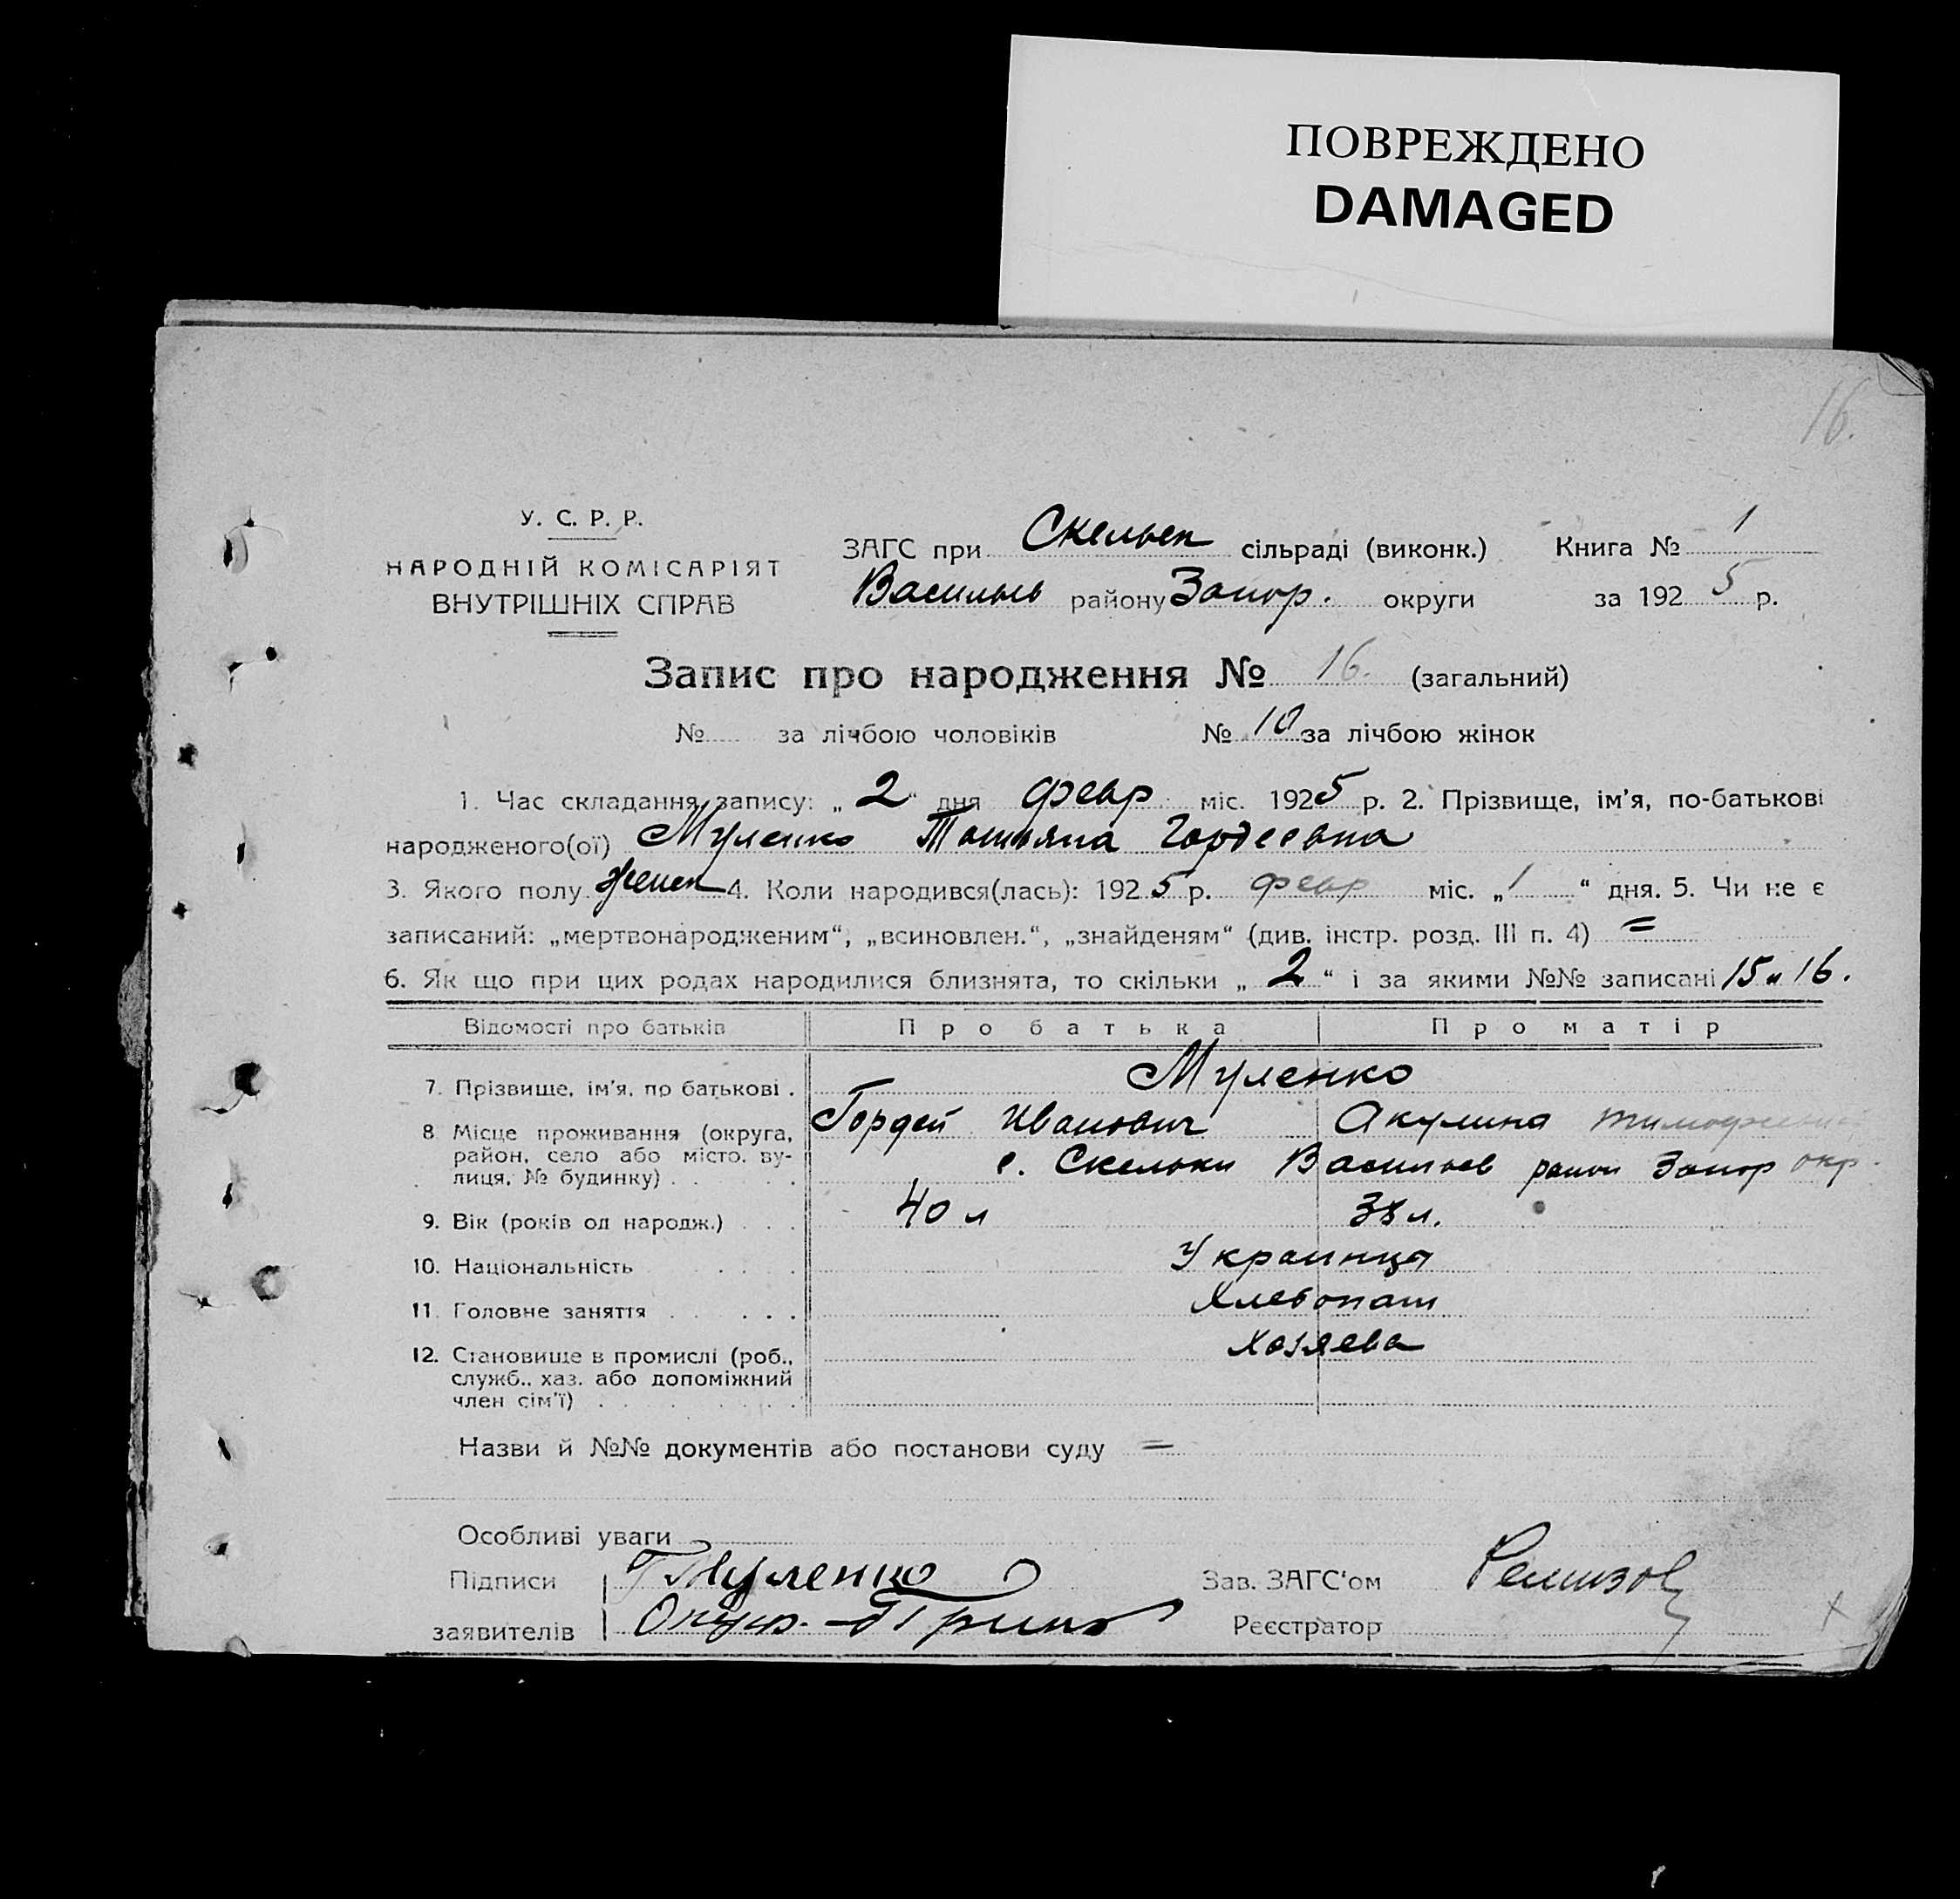 ПОВРЕЖДЕНО
DAMAGED
16.
У. С. Р. Р.
НАРОДНІЙ КОМІСАРІЯТ
ВНУТРІШНІХ СПРАВ
ЗАГС при Скельек сільраді (виконк.) Книга № 1
Васильев району Запор. округи за 1925 р.
Запис про народження № 16. (загальний)
№ за лічбою чоловіків № 10 за лічбою жінок
1. Час складання запису: „2“ дня февр міс. 1925 р. 2. Прізвище, ім'я, по-батькові
народженого(ої) Муленко Татьяна Гордеевна
3. Якого полу женск 4. Коли народився(лась): 1925 р. февр міс. „1“ дня. 5. Чи не є
записаний: „мертвонародженим“, „всиновлен.“, „знайденям“ (див. інстр. розд. III п. 4) =
6. Як що при цих родах народилися близнята, то скільки „2“ і за якими №№ записані 15 и 16.
Відомості про батьків Про батька Про матір
7. Прізвище, ім'я, по батькові . Муленко
Гордей Иванович Акулина
8 Місце проживання (округа, район, село або місто, вулиця, № будинку) . . с. Скельки Васильев район Запор окр.
9. Вік (років од народж.) . . . 40 л 38 л.
10. Національність . . . Украинца
11. Головне заняття . . . . Хлебопаш
12. Становище в промислі (роб., служб., хаз. або допоміжний член сім'ї) Хозяева
Назви й №№ документів або постанови суду =
Особливі уваги
Підписи Г Муленко Зав. ЗАГС'ом Ремизов
заявителів Реєстратор